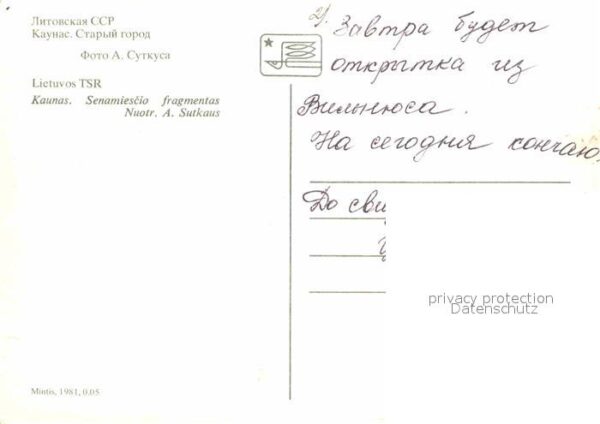 Литовская ССР
Каунас. Старый город
Фото А. Суткуса
Lietuvos TSR
Kaunas. Senamiesčio fragmentas
Nuotr. A. Sutkaus
2). Завтра будет
открытка из
Вильнюса.
На сегодня кончаю.
До сви
privacy protection
Datenschutz
Mintis, 1981, 0.05